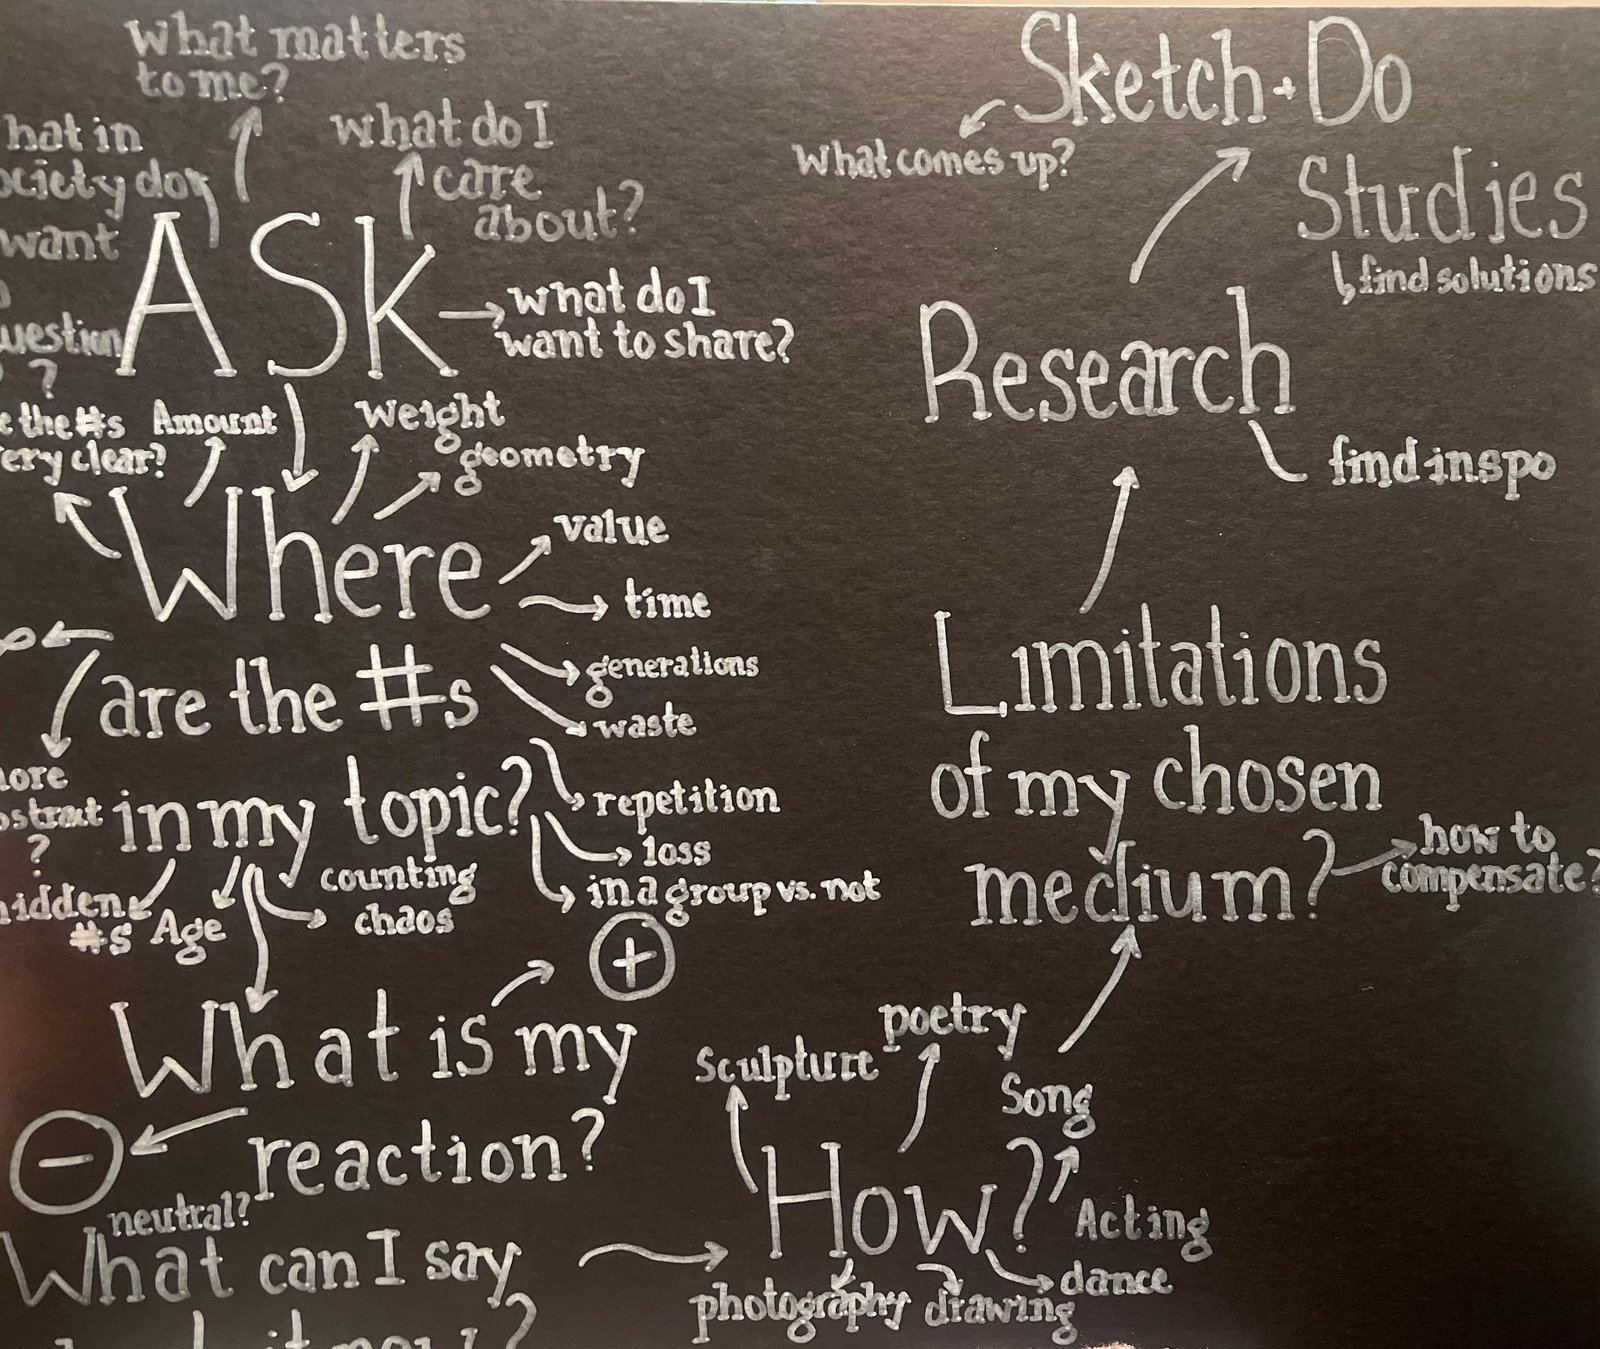 What matters
to me?
hat in
ociety do
want
uestion
?
What do I
care
about?
ASK
What do I
want to share?
e the #s
ery clear?
Amount
Weight
geometry
Where
value
time
are the #s
generations
waste
ore
stract
?
in my topic?
repetition
loss
in a group vs. not
hidden
#s
Age
counting
chaos
+
What is my
−
reaction?
neutral?
What can I say
it now?
How?
Sculpture
poetry
Song
Acting
dance
drawing
photography
Limitations
of my chosen
medium?
how to
compensate?
Research
find inspo
Sketch + Do
What comes up?
Studies
find solutions